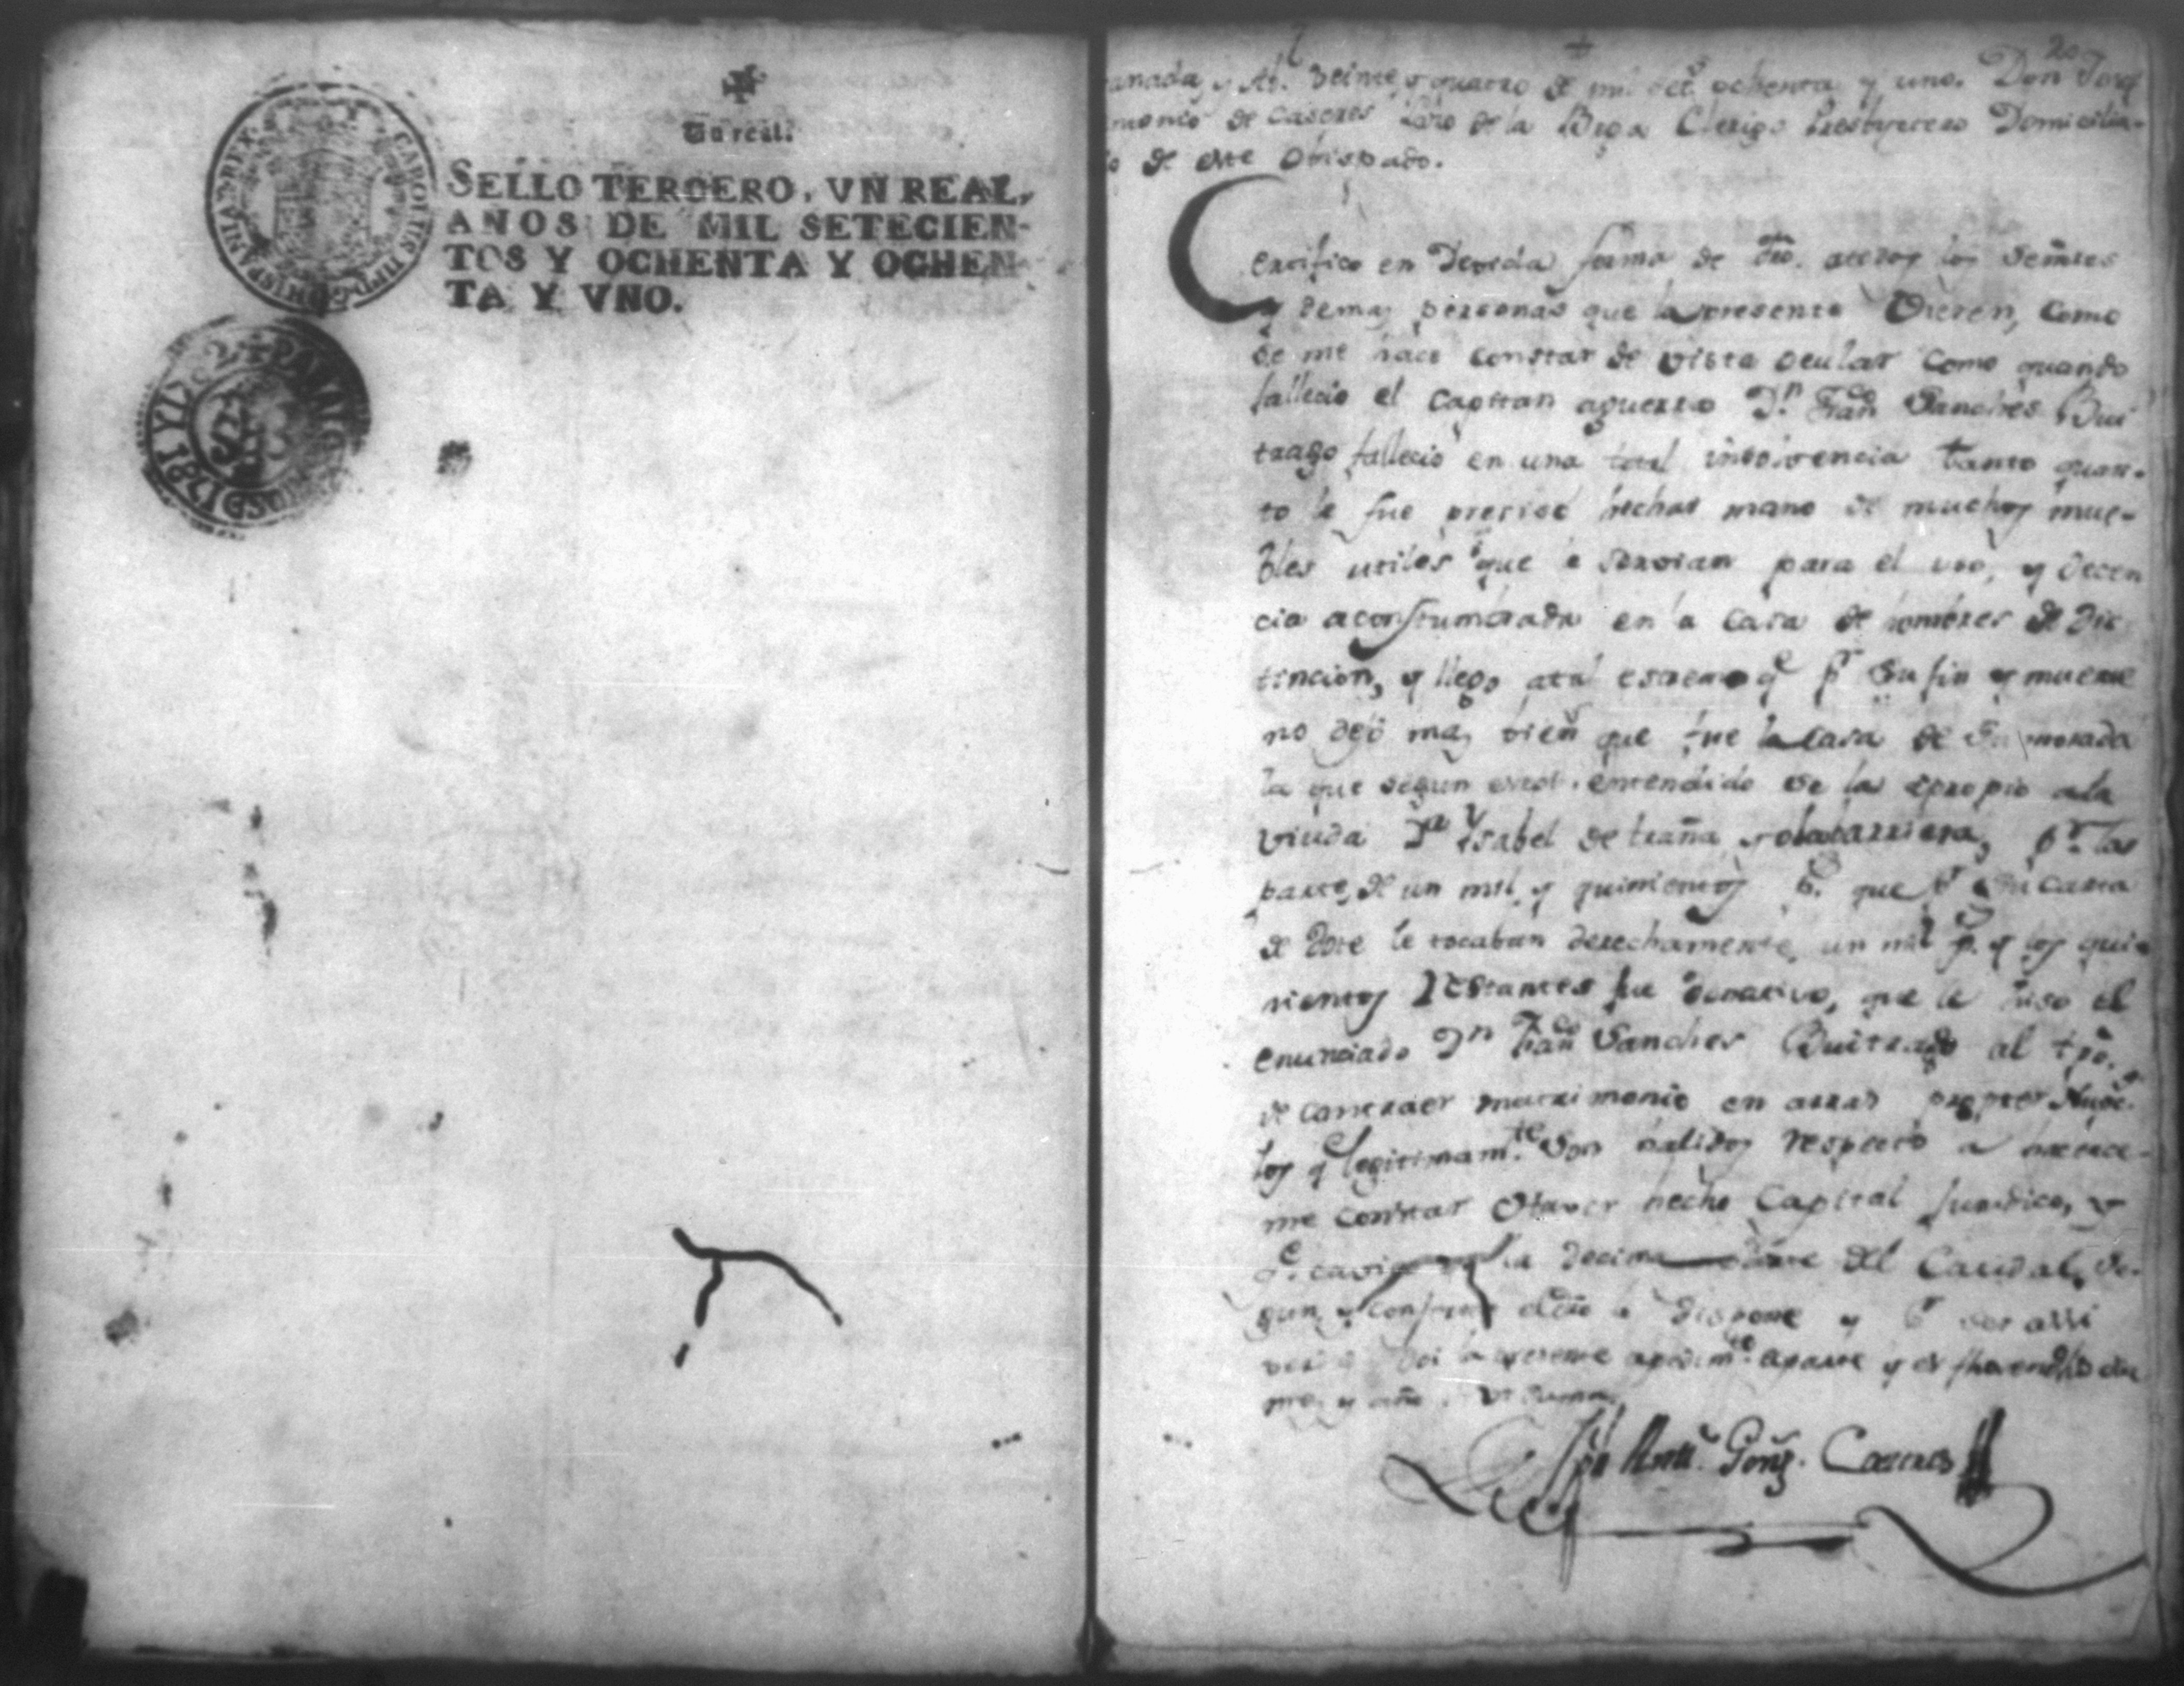 Un real.
SELLO TERCERO, VN REAL,
AÑOS DE MIL SETECIEN-
TOS Y OCHENTA Y OCHEN-
TA Y VNO.
CAROLUS III D G HISPANIAR REX
20
anada, y Ab. Veinte y quatro de mil set. ochenta y uno. Don Jorge
de Caseres de la Bega Clerigo Presbytero Domicilia-
o de este Obispado.
Certifico en Devida forma de dro. a todos los Señores
y demas personas que la presente Vieren, como
se me hace constar de vista ocular como quando
fallecio el Capitan aguerro Dn. Franco Sanches Bui
trago fallecio en una total insolvencia tanto quan-
to le fue preciso hechar mano de muchos mue-
bles utiles que le servian para el uso, y decen
cia acostumbrada en la casa de hombres de Dis
tincion, y llego a tal estremo q pr su fin y muerte
no dejó mas vien que fue la casa de su morada
la que segun estoi entendido se la apropio a la
viuda Da Ysabel de traña y olavarriera, pr. las
parte, de un mil y quinientos ps. que pr su carta
de Dote le tocaban derechamente un mil ps. y los qui-
nientos Restantes fue donativo, que le hiso el
enunciado Dn Franco Sanches Buitrago al tpo.
de contraer matrimonio en arras propter Nupc.
los q legitimamte. Son balidos respecto a hacerce-
me constar Haver hecho Capital Juridico, y
la decima parte del Caudal, se-
gun, y conforme el dro lo dispone y pr ser assi
doi la presente a pedimto. de parte y es fha en dho dia
mes y año Ut Supra
Anto. Gonz. Caceres